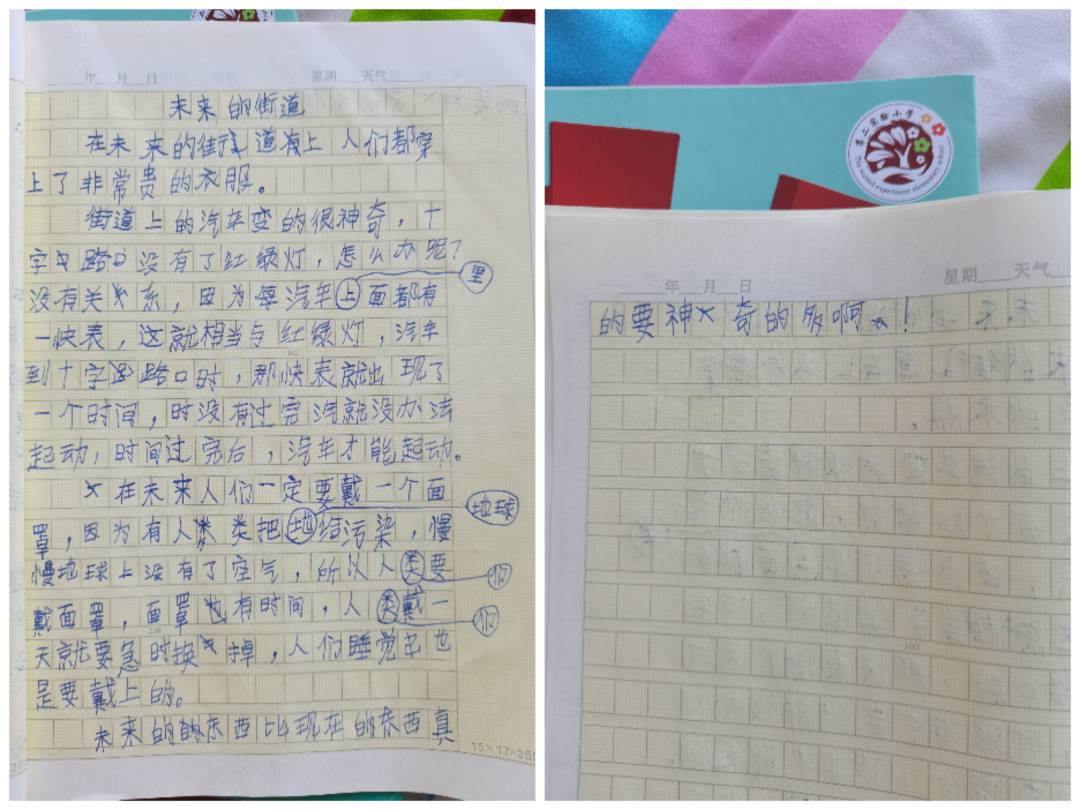 年 月 日 星期 天气
未来的街道
在未来的街道上人们都穿
上了非常贵的衣服。
街道上的汽车变的很神奇，十
字路口没有了红绿灯，怎么办呢？
里
没有关系，因为每汽车上面都有
一快表，这就相当与红绿灯，汽车
到十字路口时，那快表就出现了
一个时间，时没有过完汽就没办法
起动，时间过完后，汽车才能起动。
在未来人们一定要戴一个面
地球
罩，因为有人类把地给污染，慢
慢地球上没有了空气，所以人类要
们
戴面罩，面罩也有时间，人类戴一
们
天就要急时换掉，人们睡觉也
是要戴上的。
未来的东西比现在的东西真
15×17=255
第二实验小学
The second experiment elementary school
年 月 日 星期 天气
的要神奇的多啊！
100